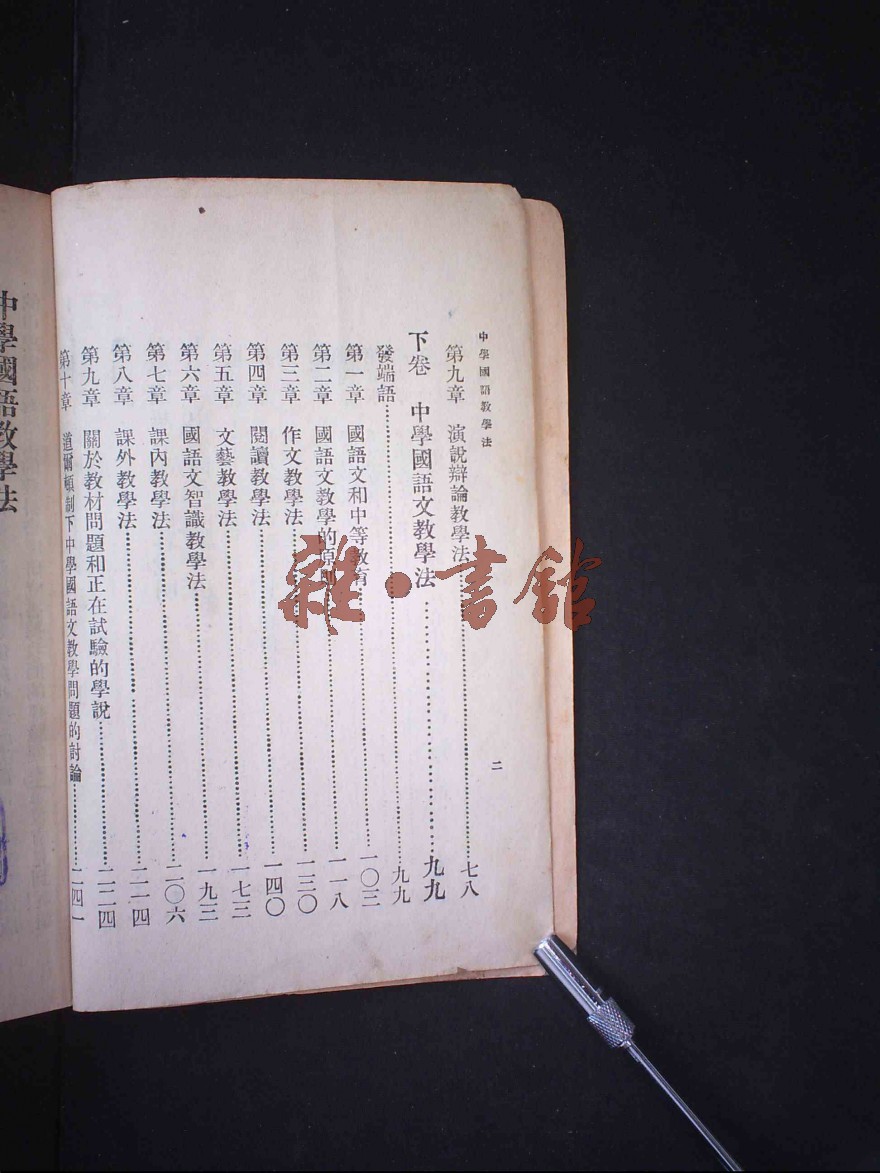 中學國語教學法
二
第九章 演說辯論教學法……七八
下卷 中學國語文教學法……九九
發端語……九九
第一章 國語文和中等教育……一〇三
第二章 國語文教學的原則……一一八
第三章 作文教學法……一三〇
第四章 閱讀教學法……一四〇
第五章 文藝教學法……一七三
第六章 國語文智識教學法……一九三
第七章 課內教學法……二〇六
第八章 課外教學法……二一四
第九章 關於教材問題和正在試驗的學說……二二四
第十章 道爾頓制下中學國語文教學問題的討論……二四一
中學國語教學法
雜·書館